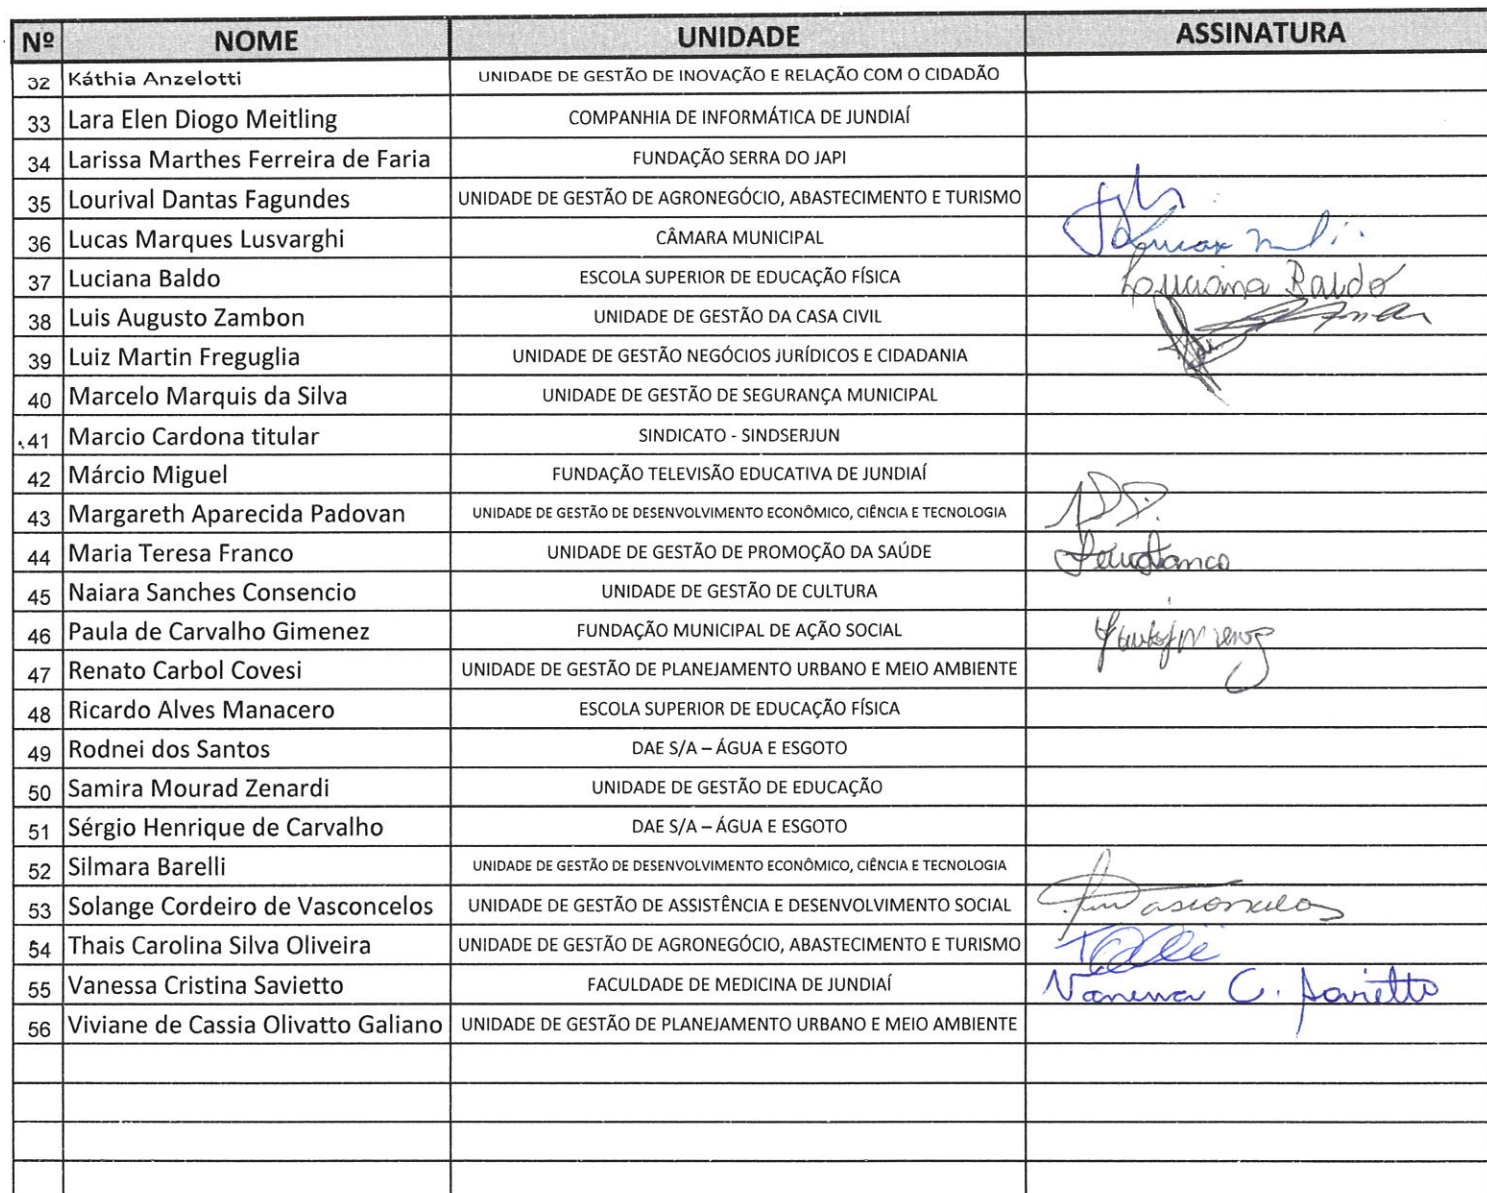 Nº NOME UNIDADE ASSINATURA
32 Káthia Anzelotti UNIDADE DE GESTÃO DE INOVAÇÃO E RELAÇÃO COM O CIDADÃO
33 Lara Elen Diogo Meitling COMPANHIA DE INFORMÁTICA DE JUNDIAÍ
34 Larissa Marthes Ferreira de Faria FUNDAÇÃO SERRA DO JAPI
35 Lourival Dantas Fagundes UNIDADE DE GESTÃO DE AGRONEGÓCIO, ABASTECIMENTO E TURISMO
36 Lucas Marques Lusvarghi CÂMARA MUNICIPAL
37 Luciana Baldo ESCOLA SUPERIOR DE EDUCAÇÃO FÍSICA Luciana Baldo
38 Luis Augusto Zambon UNIDADE DE GESTÃO DA CASA CIVIL
39 Luiz Martin Freguglia UNIDADE DE GESTÃO NEGÓCIOS JURÍDICOS E CIDADANIA
40 Marcelo Marquis da Silva UNIDADE DE GESTÃO DE SEGURANÇA MUNICIPAL
41 Marcio Cardona titular SINDICATO - SINDSERJUN
42 Márcio Miguel FUNDAÇÃO TELEVISÃO EDUCATIVA DE JUNDIAÍ
43 Margareth Aparecida Padovan UNIDADE DE GESTÃO DE DESENVOLVIMENTO ECONÔMICO, CIÊNCIA E TECNOLOGIA
44 Maria Teresa Franco UNIDADE DE GESTÃO DE PROMOÇÃO DA SAÚDE
45 Naiara Sanches Consencio UNIDADE DE GESTÃO DE CULTURA
46 Paula de Carvalho Gimenez FUNDAÇÃO MUNICIPAL DE AÇÃO SOCIAL
47 Renato Carbol Covesi UNIDADE DE GESTÃO DE PLANEJAMENTO URBANO E MEIO AMBIENTE
48 Ricardo Alves Manacero ESCOLA SUPERIOR DE EDUCAÇÃO FÍSICA
49 Rodnei dos Santos DAE S/A – ÁGUA E ESGOTO
50 Samira Mourad Zenardi UNIDADE DE GESTÃO DE EDUCAÇÃO
51 Sérgio Henrique de Carvalho DAE S/A – ÁGUA E ESGOTO
52 Silmara Barelli UNIDADE DE GESTÃO DE DESENVOLVIMENTO ECONÔMICO, CIÊNCIA E TECNOLOGIA
53 Solange Cordeiro de Vasconcelos UNIDADE DE GESTÃO DE ASSISTÊNCIA E DESENVOLVIMENTO SOCIAL
54 Thais Carolina Silva Oliveira UNIDADE DE GESTÃO DE AGRONEGÓCIO, ABASTECIMENTO E TURISMO
55 Vanessa Cristina Savietto FACULDADE DE MEDICINA DE JUNDIAÍ Vanessa C. Savietto
56 Viviane de Cassia Olivatto Galiano UNIDADE DE GESTÃO DE PLANEJAMENTO URBANO E MEIO AMBIENTE